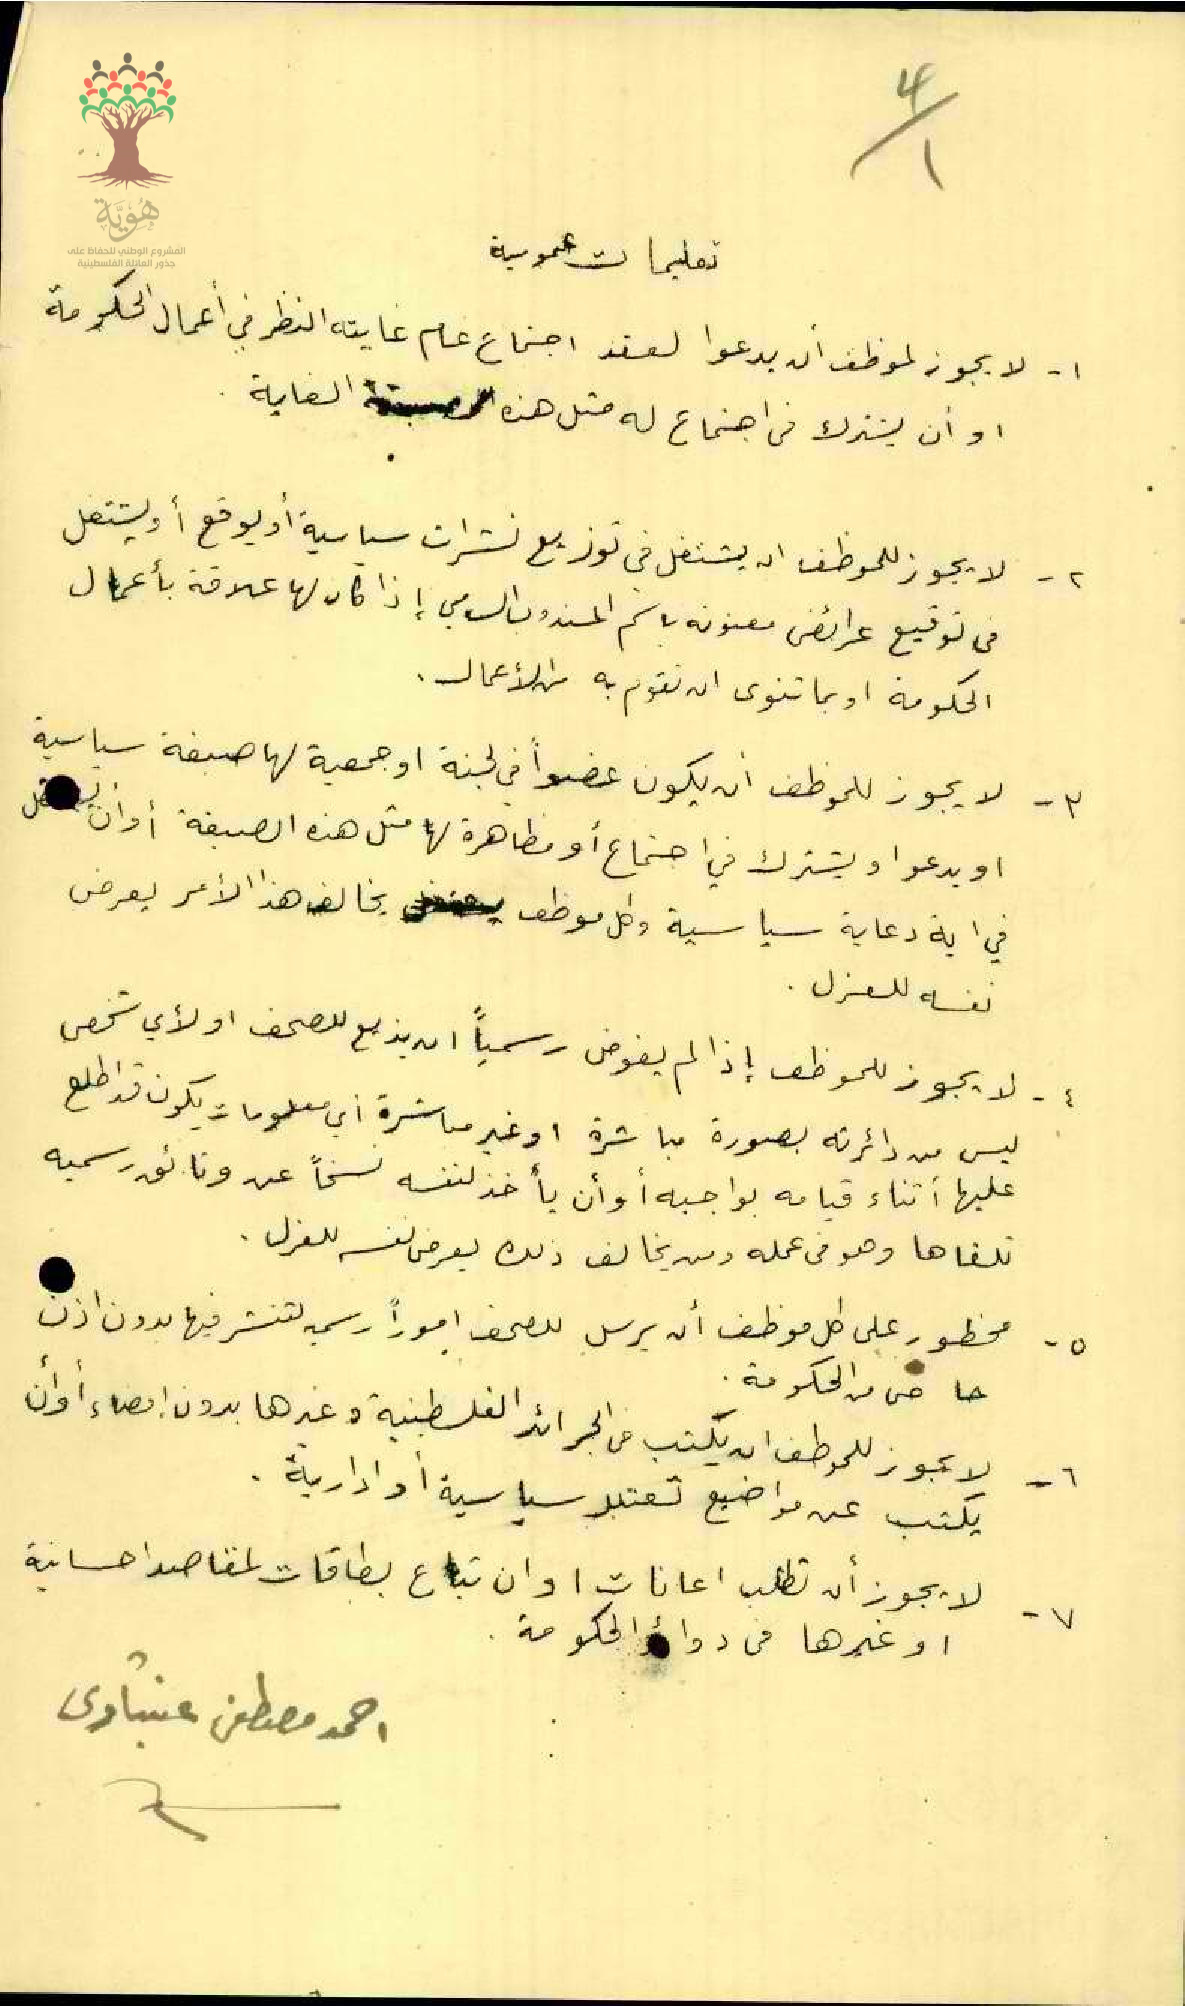 ٤/١
هُوِيَّة
المشروع الوطني للحفاظ على
جذور العائلة الفلسطينية
تعليمات عمومية
١- لا يجوز لموظف أن يدعوا لعقد اجتماع عام غايته النظر في أعمال الحكومة
او أن يشترك في اجتماع له مثل هذه الغاية .
٢- لا يجوز للموظف ان يشتغل في توزيع نشرات سياسية أو يوقع أو يشتغل
في توقيع عرائض معنونه باسم المندوب السامي إذا كان لها علاقة بأعمال
الحكومة او بما تنوى ان تقوم به من الأعمال .
٣- لا يجوز للموظف ان يكون عضواً في لجنة او جمعية لها صبغة سياسية
او يدعوا ويشترك في اجتماع أو مظاهرة لها مثل هذه الصبغة أو أن يشتغل
في اية دعاية سياسية وكل موظف يخالف هذا الأمر يعرض
نفسه للعزل .
٤- لا يجوز للموظف إذا لم يفوض رسمياً ان يذيع للصحف او لأي شخص
ليس من دائرته بصورة مباشرة او غير مباشرة أي معلومات يكون قد اطلع
عليها أثناء قيامه بواجبه أو أن يأخذ لنفسه نسخاً عن وثائق رسميه
تلقاها وهو في عمله ومن يخالف ذلك يعرض نفسه للعزل .
٥- محظور على كل موظف أن يرسل للصحف اموراً رسميه لتنشر فيها بدون اذن
خاص من الحكومة .
٦- لا يجوز للموظف ان يكتب في الجرائد الفلسطينية وغيرها بدون إمضاء أو أن
يكتب عن مواضيع تعتبر سياسية أو ادارية .
٧- لا يجوز أن تطلب اعانات او ان تباع بطاقات لمقاصد احسانية
او غيرها في دوائر الحكومة .
احمد مصطفى عنبتاوى